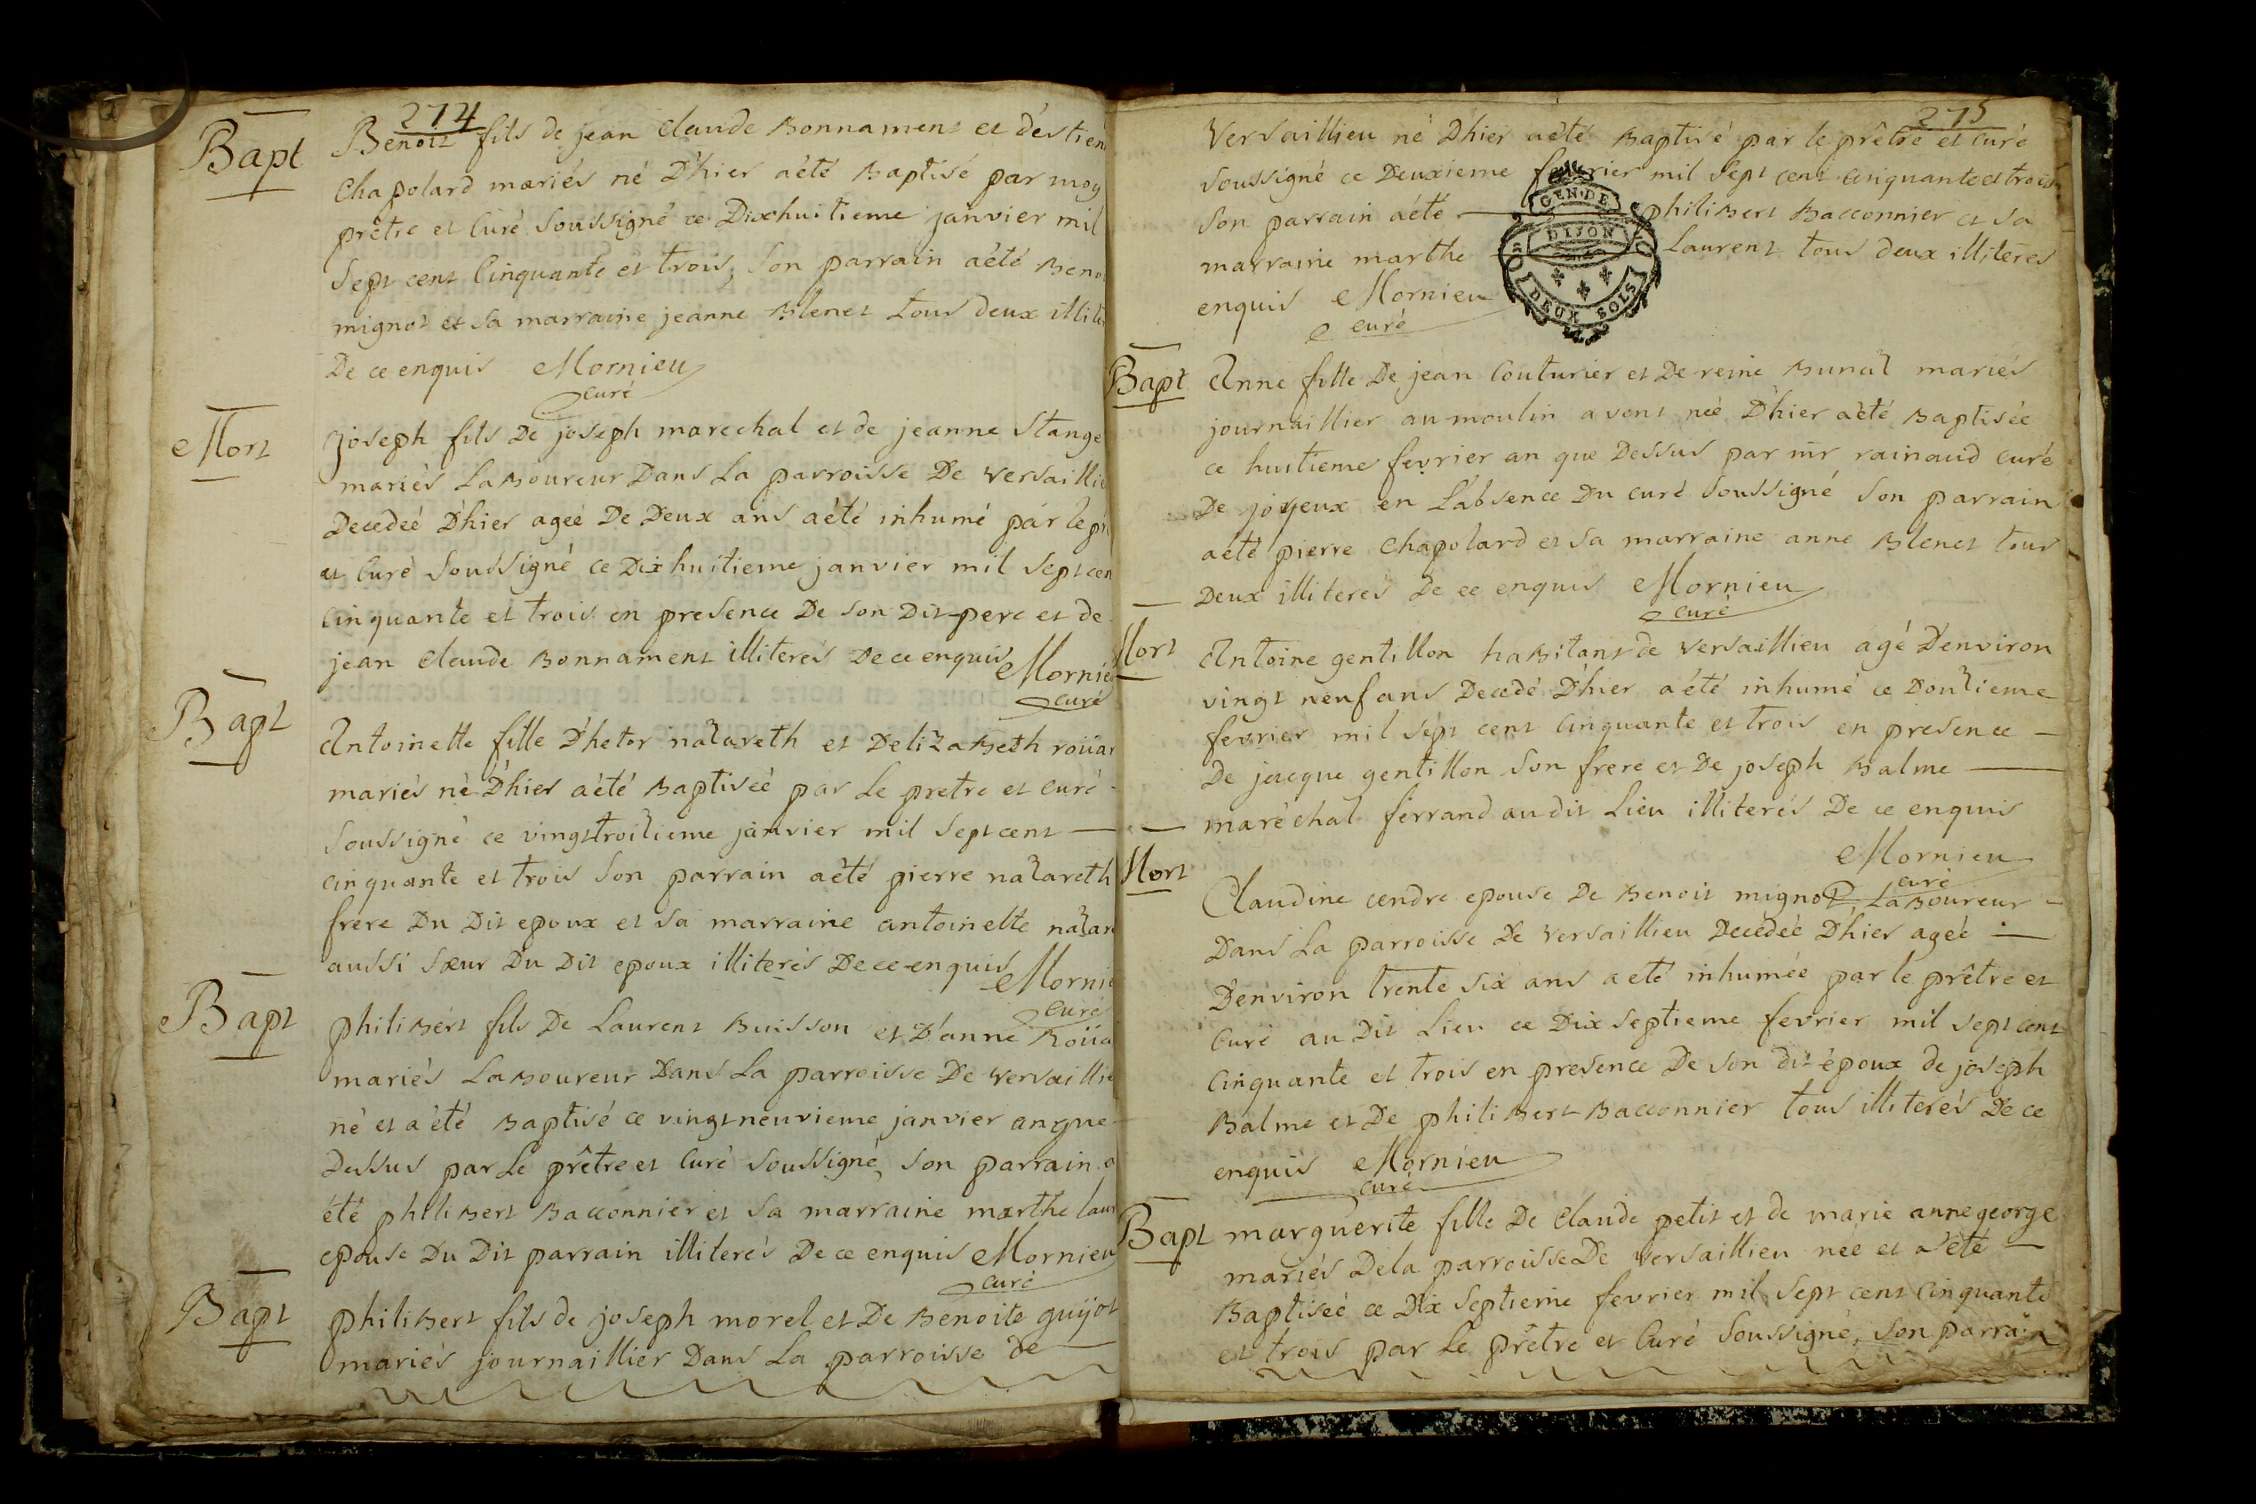 274
Bapt
Benoit fils de jean Claude Bonnament et d'estien
Chapolard mariés né D'hier a été Baptisé par moy
prêtre et Curé Soussigné ce Dixhuitieme janvier mil
Sept cent Cinquante et trois, Son parrain a été Beno
mignot et sa marraine jeanne Blenet tous deux illite
De ce enquis Mornieu
curé
Mort
joseph fils De joseph marechal et de jeanne Stange
mariés Laboureur Dans La parroisse De Versaillie
Decedeé D'hier ageé De Deux ans a été inhumé par le pr
et Curé Soussigné ce Dixhuitieme janvier mil Sept cen
Cinquante et trois en presence De Son Dit pere et de
jean Claude Bonnament illiterés De ce enquis Mornie
curé
Bapt
Antoinette fille D'hetor nazareth et D'elizabeth roüar
mariés né D'hier a été Baptiseé par Le pretre et Curé
Soussigné ce vingttroizieme janvier mil Sept cent
Cinquante et trois Son parrain a été pierre nazareth
frere Du Dit epoux et Sa marraine antoinette nazar
aussi sœur Du Dit epoux illiterés De ce enquis Mornie
Curé
Bapt
philibert fils De Laurent Buisson et D'anne Roüa
mariés Laboureur Dans La parroisse De Versaillie
né et a été Baptisé ce vingtneuvieme janvier an que
Dessus par Le prêtre et Curé Soussigné, Son parrain a
été philibert Bacconnier et Sa marraine marthe laur
epouse Du Dit parrain illiterés De ce enquis Mornieu
curé
Bapt
philibert fils de joseph morel et De Benoite guijot
mariés journaillier Dans La parroisse de
275
Versaillieu né D'hier a été Baptisé par le prêtre et Curé
Soussigné ce Deuxieme fevrier mil Sept cent Cinquante et trois
Son parrain a été philibert Bacconnier et sa
marraine marthe Laurent tous deux illiterés
enquis Mornieu
curé
GEN·DE
DIJON
DEUX SOLS
Bapt
Anne fille De jean Couturier et De reine Bunal mariés
journaillier au moulin a vent neé D'hier a été Baptisée
ce huitieme fevrier an que Dessus par mr rainaud curé
De joyeux en L'absence Du curé Soussigné Son parrain
a été pierre Chapolard et Sa marraine anne Blenet tous
Deux illiterés De ce enquis Mornieu
curé
Mort
Antoine gentillon habitant de Versaillieu agé D'environ
vingt neuf ans Decedé D'hier a été inhumé ce Douzieme
fevrier mil Sept cent Cinquante et trois en presence
De jacque gentillon Son frere et De joseph Balme
maréchal ferrand au dit Lieu illiterés De ce enquis
Mornieu
curé
Mort
Claudine cendre epouse De Benoit mignot Laboureur
Dans La parroisse De Versaillieu Decédeé D'hier ageé
D'environ trente six ans a eté inhumée par le prêtre et
Curé au Dit Lieu ce Dix Septieme fevrier mil Sept cent
Cinquante et trois en presence De Son dit époux de joseph
Balme et De philibert Bacconnier tous illiterés De ce
enquis Mornieu
curé
Bapt
marguerite fille De Claude petit et de marie anne george
mariés De la parroisse De Versaillieu née et a été
Baptiseé ce Dix Septieme fevrier mil Sept cent Cinquante
et trois par Le prêtre et Curé Soussigné, Son parrain